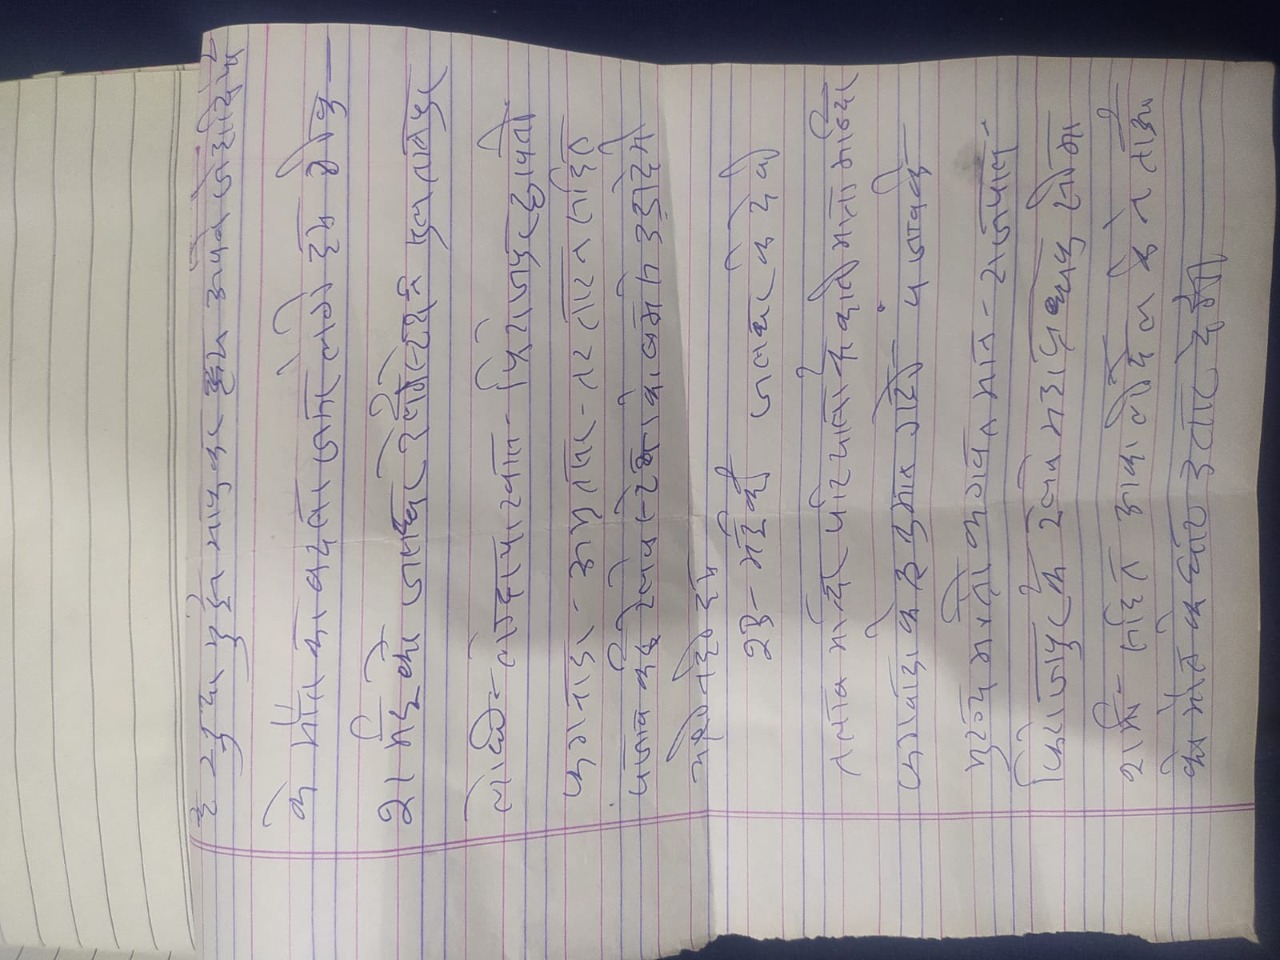 हे खुदा मुझे माफ करना हम अपने जेहादियों
के मौत का बदला जरूर लेंगे हम ठीक
21 मई को जलंधर रेलवे स्टेशन सुलतानपुर
लोधी - लोहदा खास - फिरोजपुर
फगवाडा - अमृतसर - तरतारन सहित
पंजाब कई रेलवे स्टेशन को बम से उड़ा देगे
हम
23 - मई को जलंधर के देवी
तलाब मन्दिर पटियाला के काली माता मन्दिर
फगवाडा के हनुमान गढी पंजाब के
मुख्य मन्त्री भगवन्त मान - राज्यपाल
फिरोजपुर के रेलवे महाप्रबन्धक सीमा
शर्मा सहित अकालीदल के नेताओ
को मौत के घाट उतार देगे